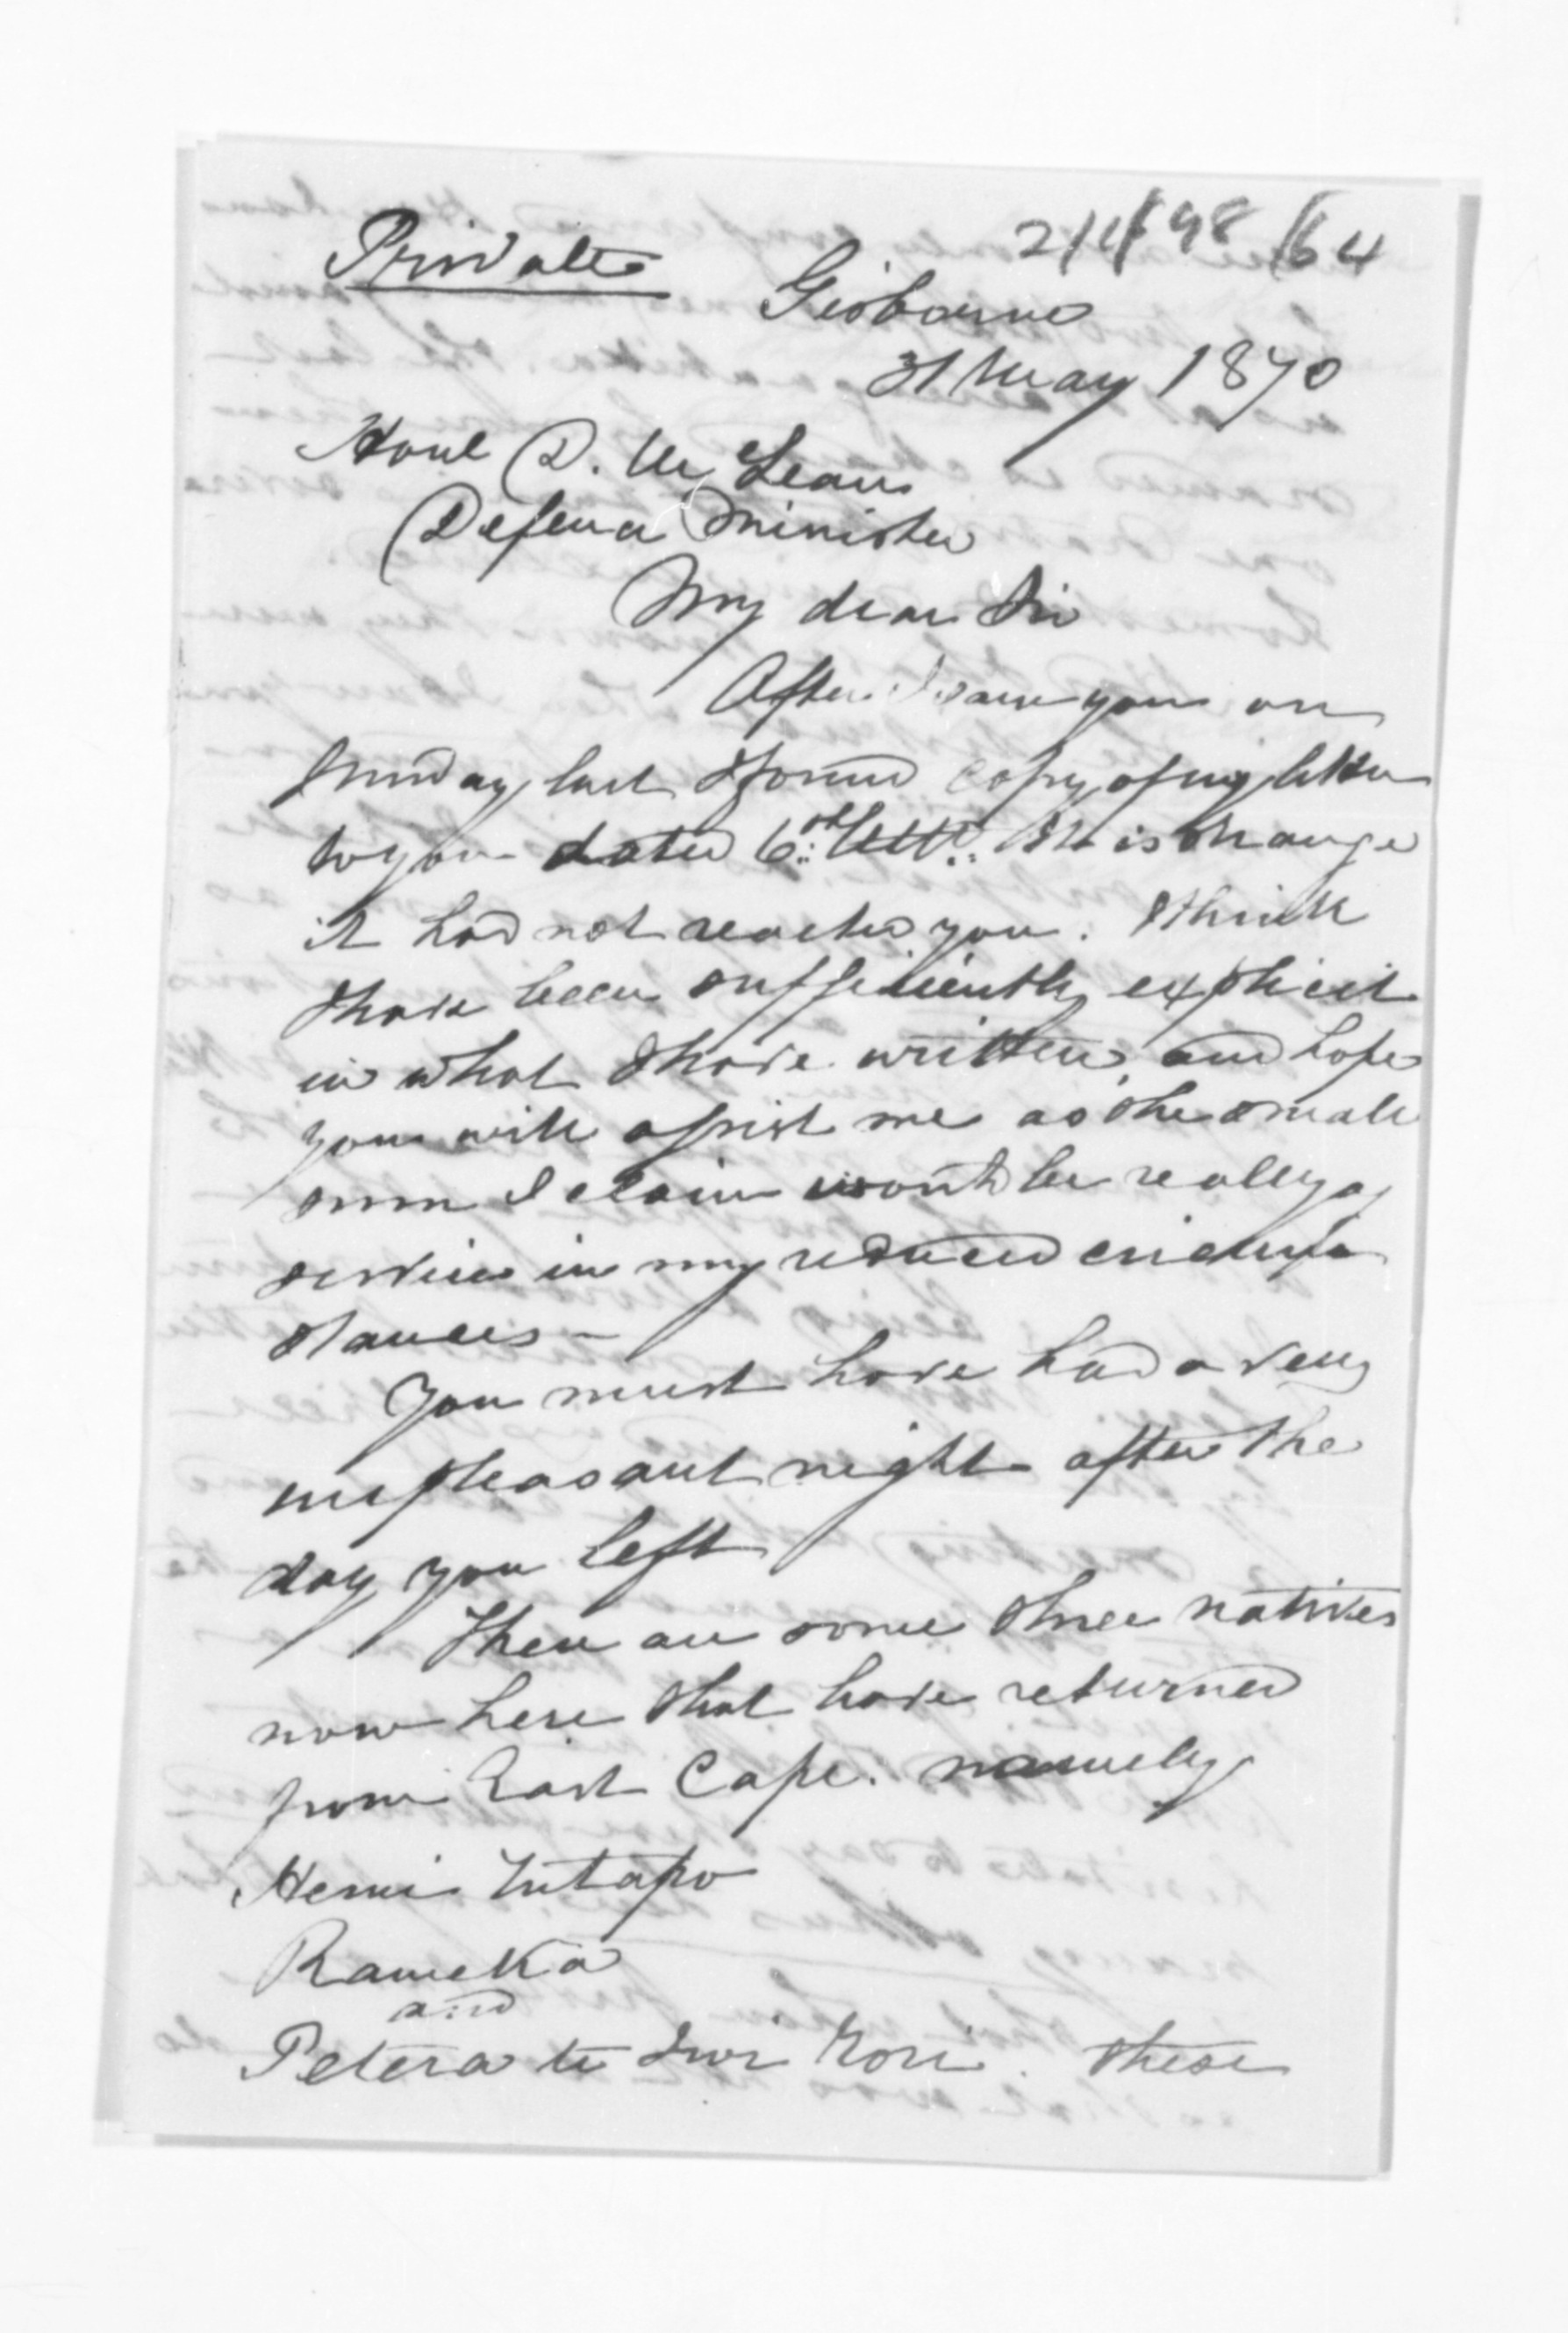 Private
Gisborne
31 May 1870
Honl D. McLean
Defence Minister
My dear Sir
After I saw you on
Sunday last I found copy of my letter
to you dated 6th Ult. It is strange
it had not reached you. I think
I have been sufficiently explicit
in what I have written, and hope
you will assist me as the small
sum I claim would be really a
service in my reduced circum
stances -
You must have had a very
unpleasant night after the
day you left
There are some three natives
now here that have returned
from East Cape. namely
Hemi Tutapo
Rameka
and
Petera te Iwi Rori. These